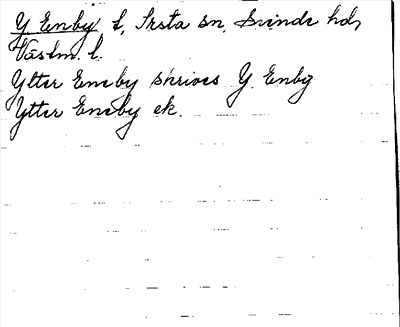 Y Enby t, Irsta sn, Svinde hd,
Västm. l.
Ytter Eneby skrives Y. Enby
Ytter Eneby ek.